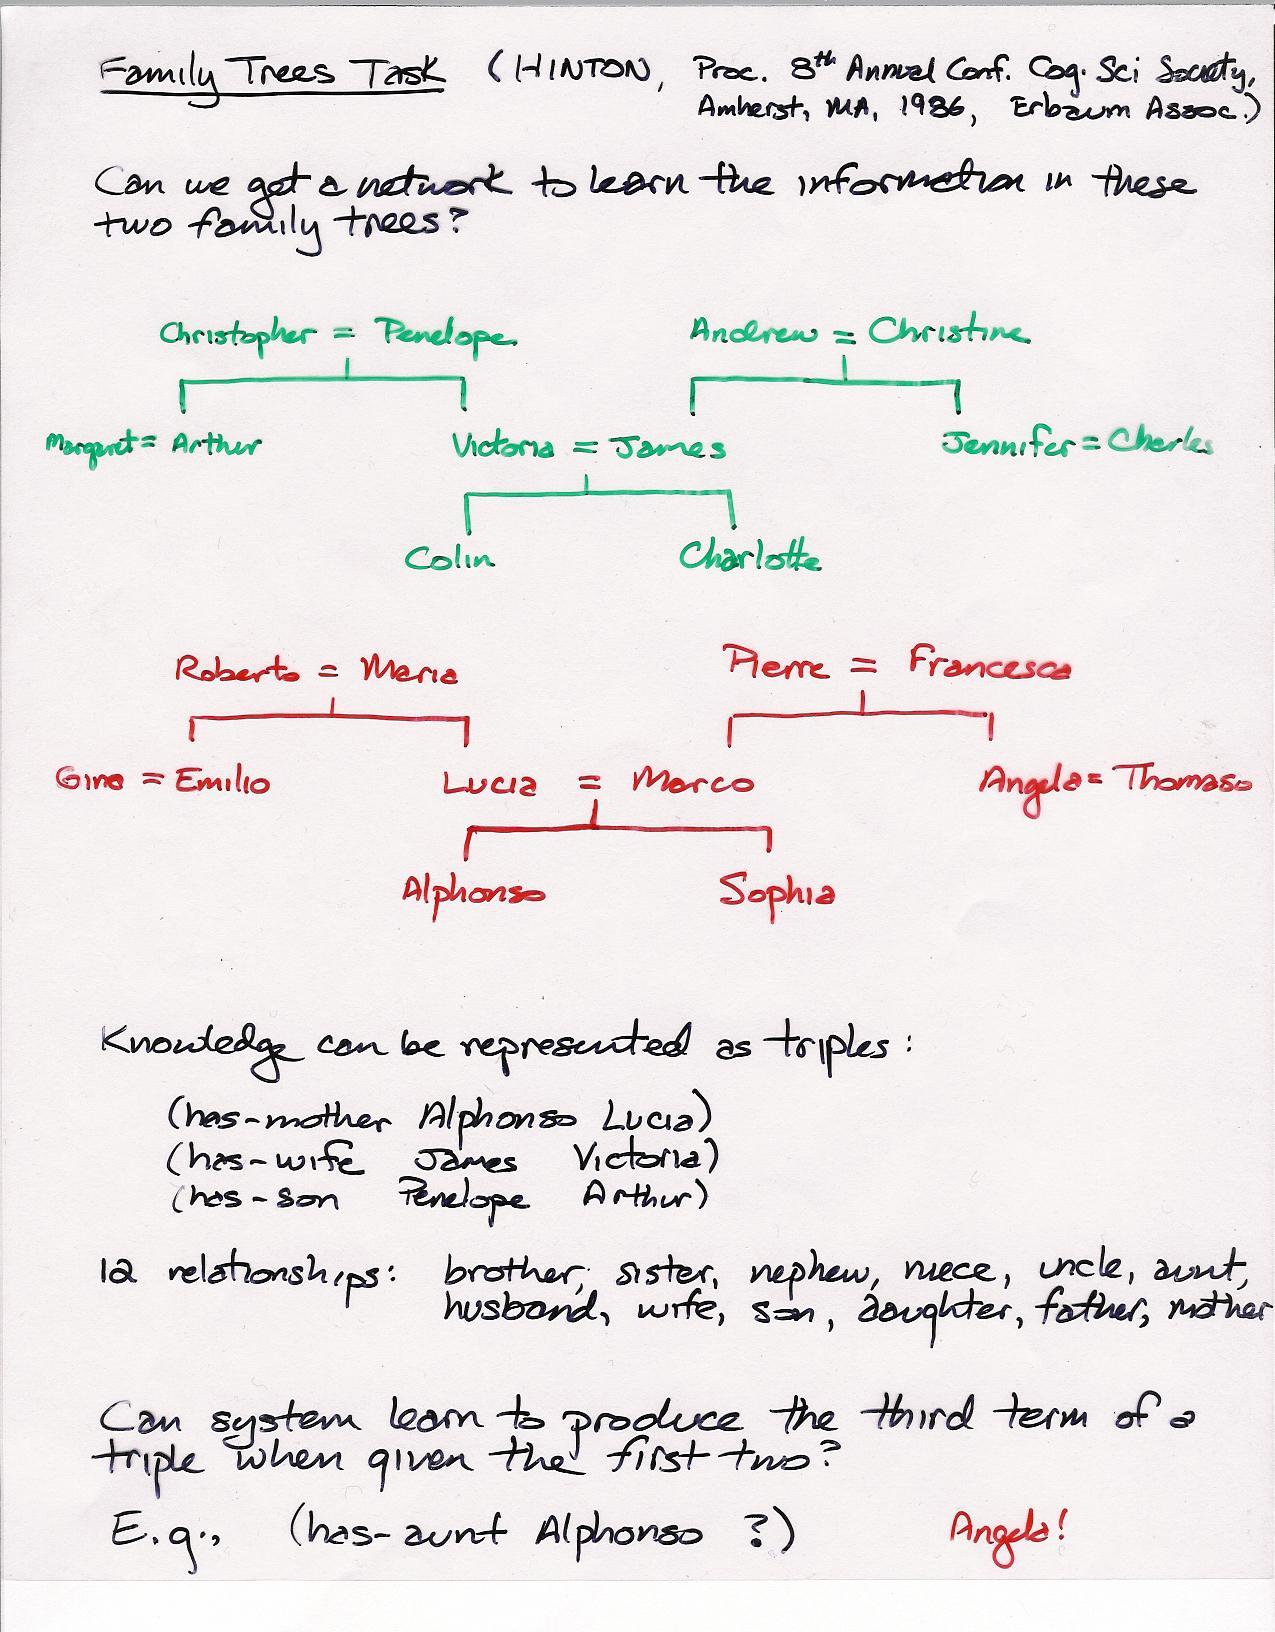 Family Trees Task (HINTON, Proc. 8th Annual Conf. Cog. Sci Society,
Amherst, MA, 1986, Erbaum Assoc.)
Can we get a network to learn the information in these
two family trees?
Christopher = Penelope Andrew = Christine
Margaret = Arthur Victoria = James Jennifer = Charles
Colin Charlotte
Roberto = Maria Pierre = Francesca
Gina = Emilio Lucia = Marco Angela = Thomaso
Alphonso Sophia
Knowledge can be represented as triples:
(has-mother Alphonso Lucia)
(has-wife James Victoria)
(has-son Penelope Arthur)
12 relationships: brother, sister, nephew, niece, uncle, aunt,
husband, wife, son, daughter, father, mother
Can system learn to produce the third term of a
triple when given the first two?
E.g., (has-aunt Alphonso ?) Angela!